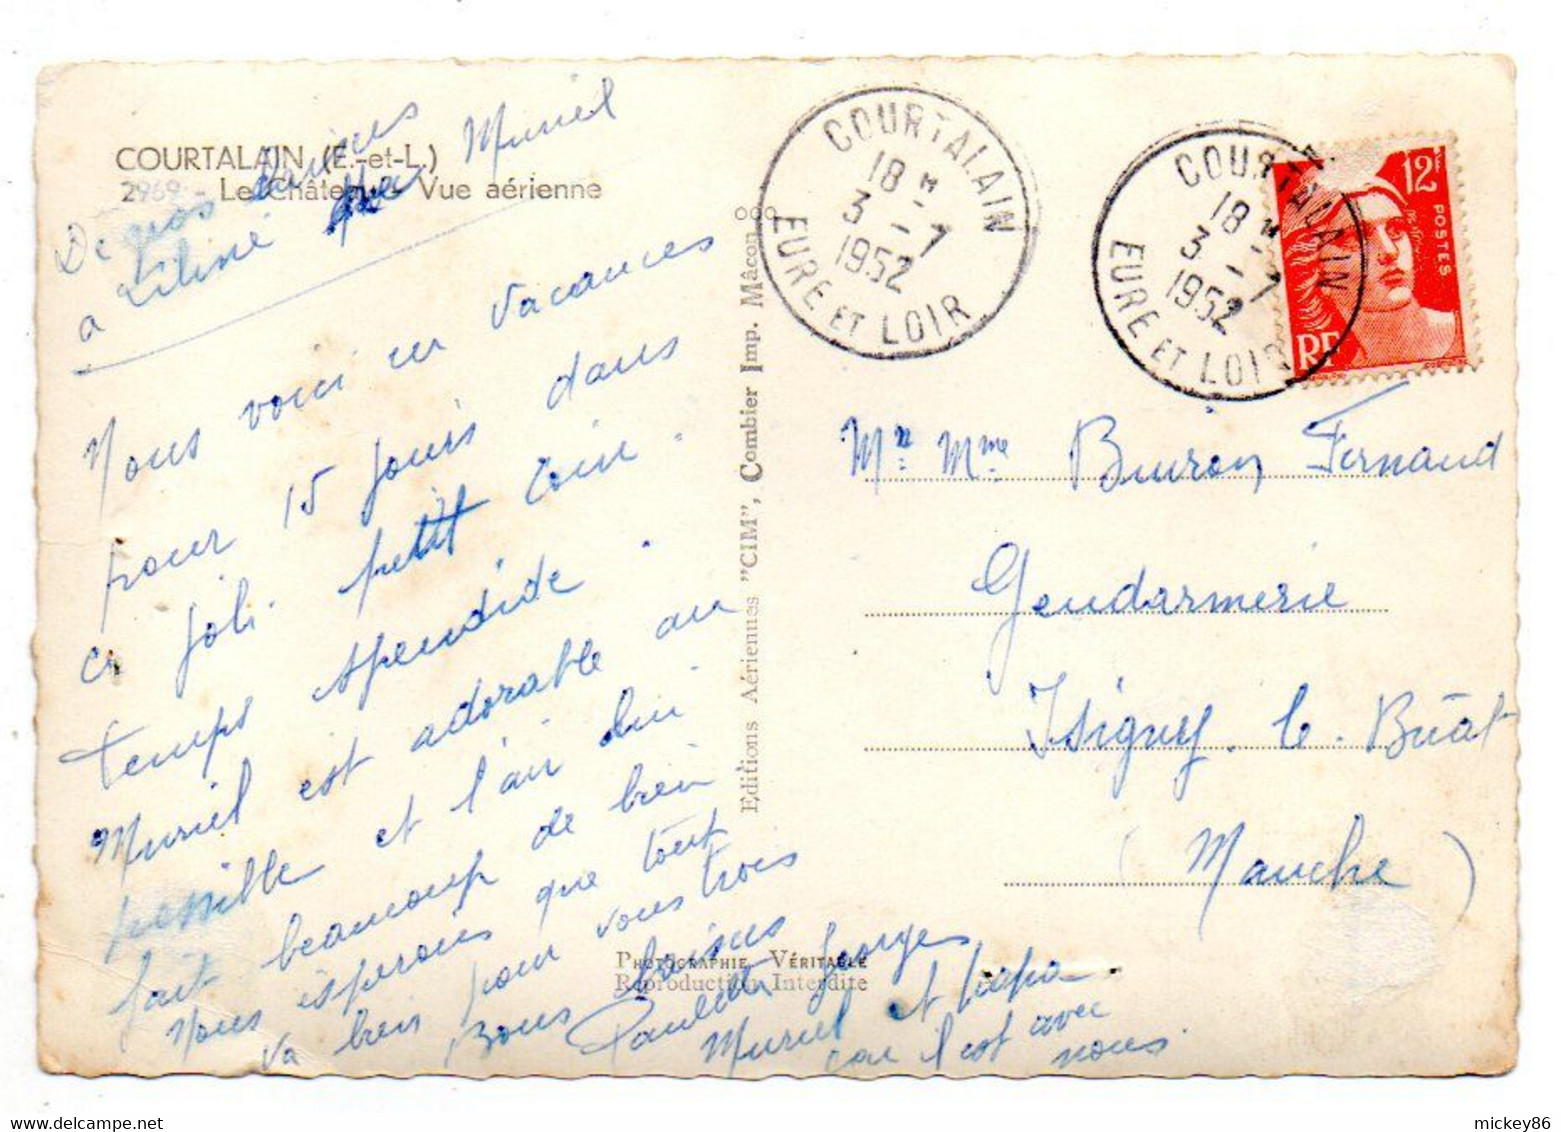 COURTALAIN (E.-et-L.)
2969 - Le Château - Vue aérienne
De gros baisers
a Liline Muriel
Nous voici en vacances
pour 15 jours dans
ce joli petit coin.
temps spendide.
Muriel est adorable au
possible et l'air lui
fait beaucoup de bien
Nous espérons que tout
va bien pour vous trois
Bons baisers
Paulette Georges
Muriel et papa
car il est avec
nous.
Editions Aériennes "CIM", Combier Imp. Mâcon
PHOTOGRAPHIE VÉRITABLE
Reproduction Interdite
COURTALAIN
18 H
3 - 7
1952
EURE ET LOIR
COURTALAIN
18 H
3 - 7
1952
EURE ET LOIR
12F
POSTES
RF
Mr Mme Buron Fernand
Gendarmerie
Isigny. le. Buat
(Manche)
mickey86